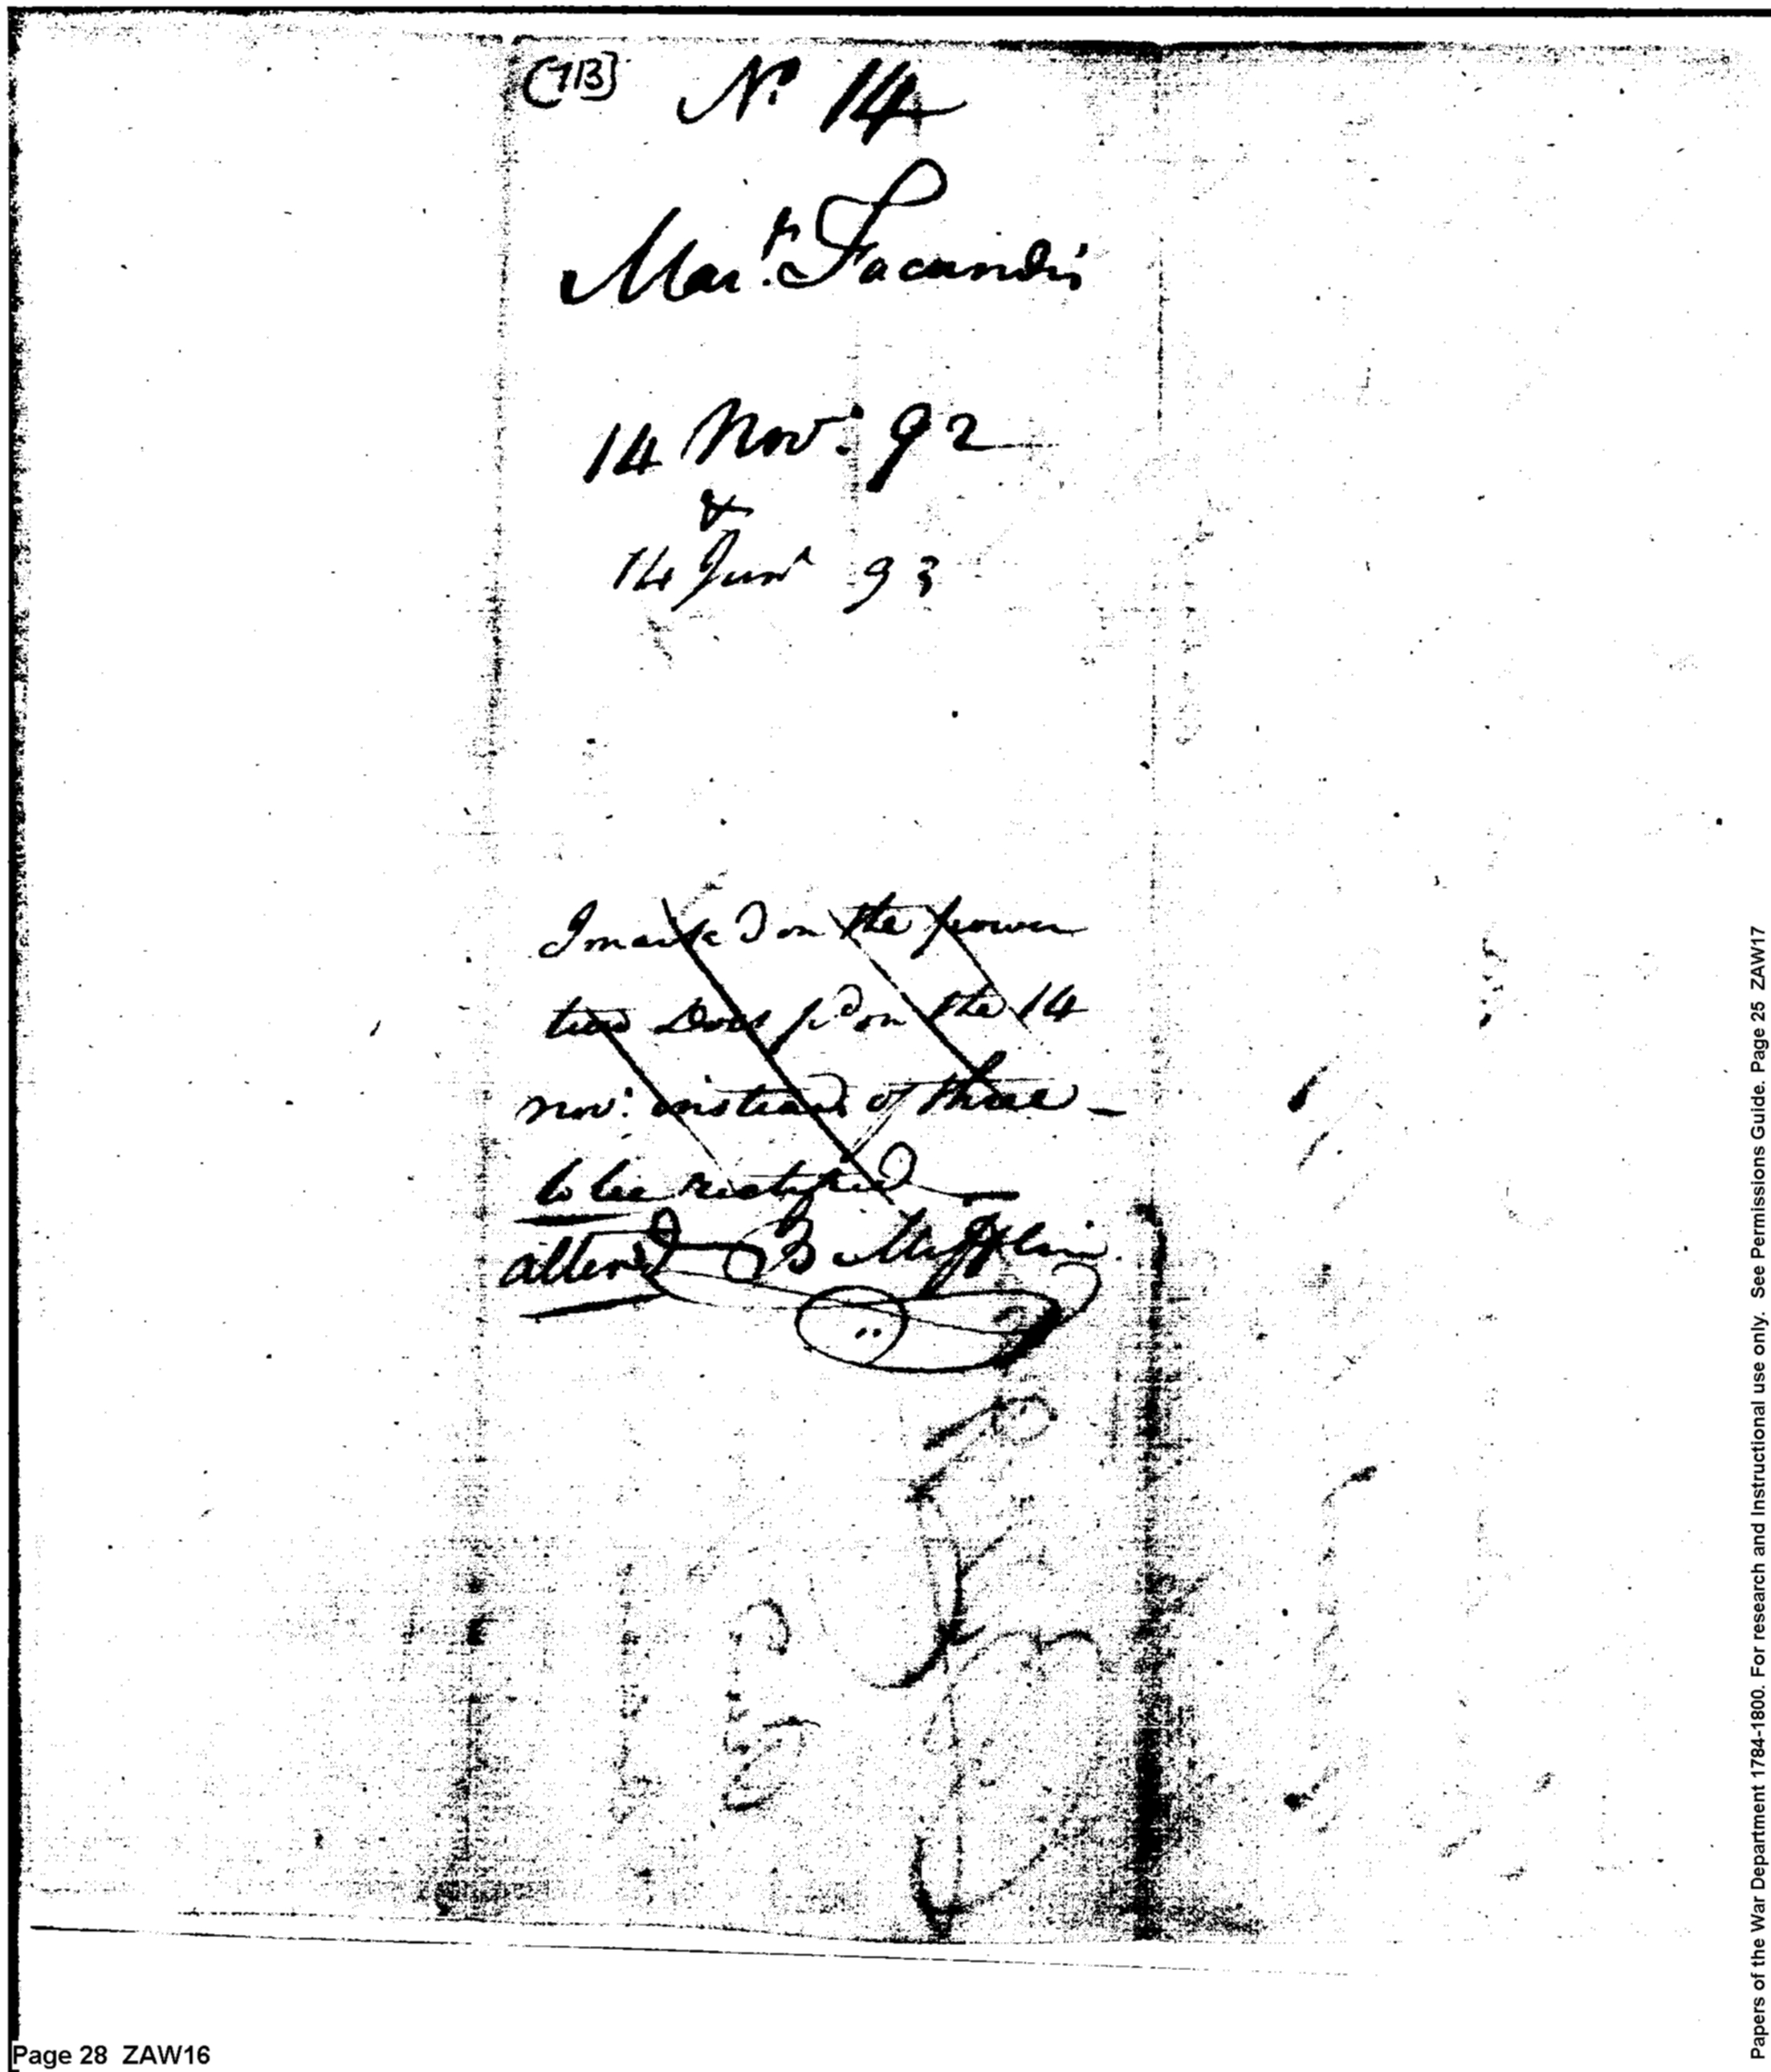 (113) No. 14
Mart. Facundus
14 Nov. 92
&
14 Jun 93
I mark'd on the power
two Dols pd on the 14
nov: instead of three —
to be rectified —
altered B Mifflin
Page 28 ZAW16
Papers of the War Department 1784-1800. For research and Instructional use only. See Permissions Guide. Page 25 ZAW17